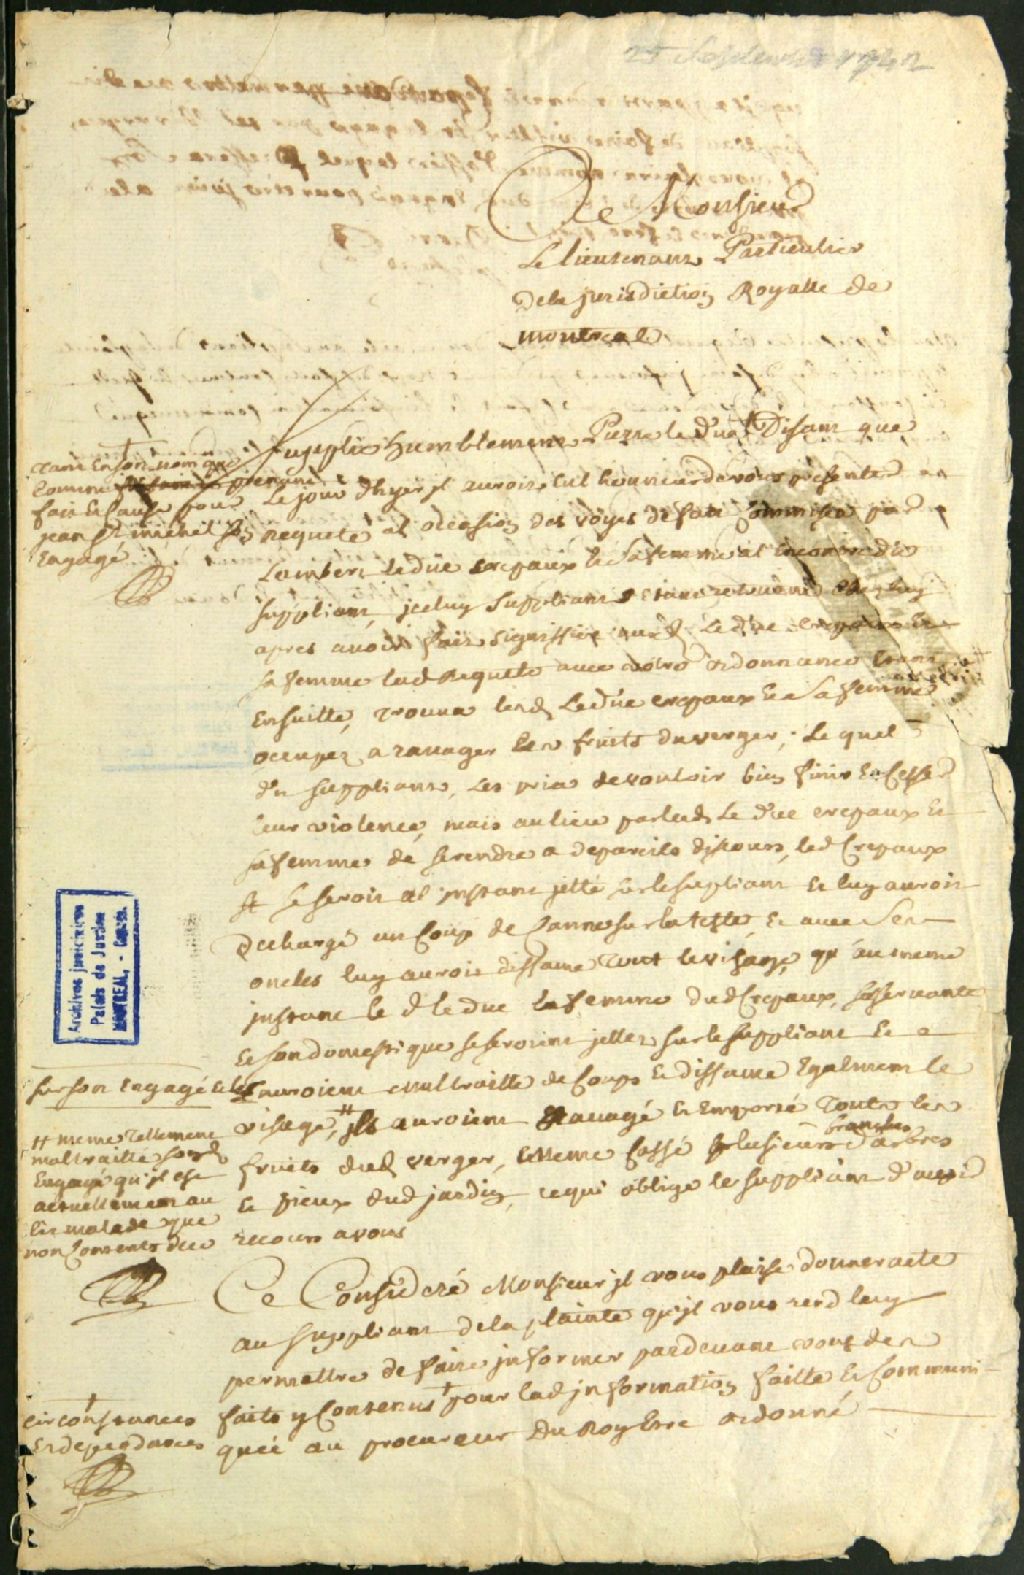 25 Septembre 1742
A Monsieur
Le lieutenant Particulier
dela jurisdiction Royalle de
montreal
Supplie humblement Pierre leduc † Disant que
† tant en son nom que
comme prenant
fait et cause pour
jean Bte michel son
Engagé
Le jour d'hyer jl auroit eut l'honneur de vous presenter
Requete a l'occasion des voyes de fait commises par
Lambert Leduc crepaux et sa femme al'encontre du
suppliant, jceluy suppliant Estant retourné chez luy
apres avoir fait signiffier aud. Leduc
sa femme lad Requete avec votre ordonnance
Ensuitte, trouva lesd. Leduc crepaux et sa femme
occupez a ravager les fruits du verger; Le quel
dt suppliant, les pria de vouloir bien finir et Cesser
leur violence, mais au lieu par led. Le duc crepaux et
sa femme de se rendre a de pareils discours, led Crepaux
se seroit al'jnstant jetté sur le supliant et luy auroit
dechargé un Coup de Canne sur la teste, et avec ses
oncles luy auroit diffamé tout le visage, qu'au meme
jnstant le d. leduc la femme dud Crepaux, sa servante
et son domestique se seroient jettez sur le suppliant et
sur son Engagé et les
auroient maltraitté de Coups et diffamé Egalment le
visage, # jls auroient Ravagé et Emporté toute les
# meme tellement
maltraitté sond.
Engagé qu'jl est
actuellement au
lit malade que
non Contents de ce
fruits dud. verger, et meme Cassé plusieurs branches d'arbres
et pieux dud jardin, ce qui oblige le suppliant d'avoir
recours a vous
Ce Consideré Monsieur jl vous plaise donner acte
au suppliant de la plainte qu'jl vous rend luy
permettre de faire jnformer pardevant vous des
faits y Contenus † pour lad jnformation faitte et Communi-
† circonstances
et dependances
quée au procureur du Roy Etre ordonné
Archives judiciaires
Palais de Justice
MONTREAL, - Canada.